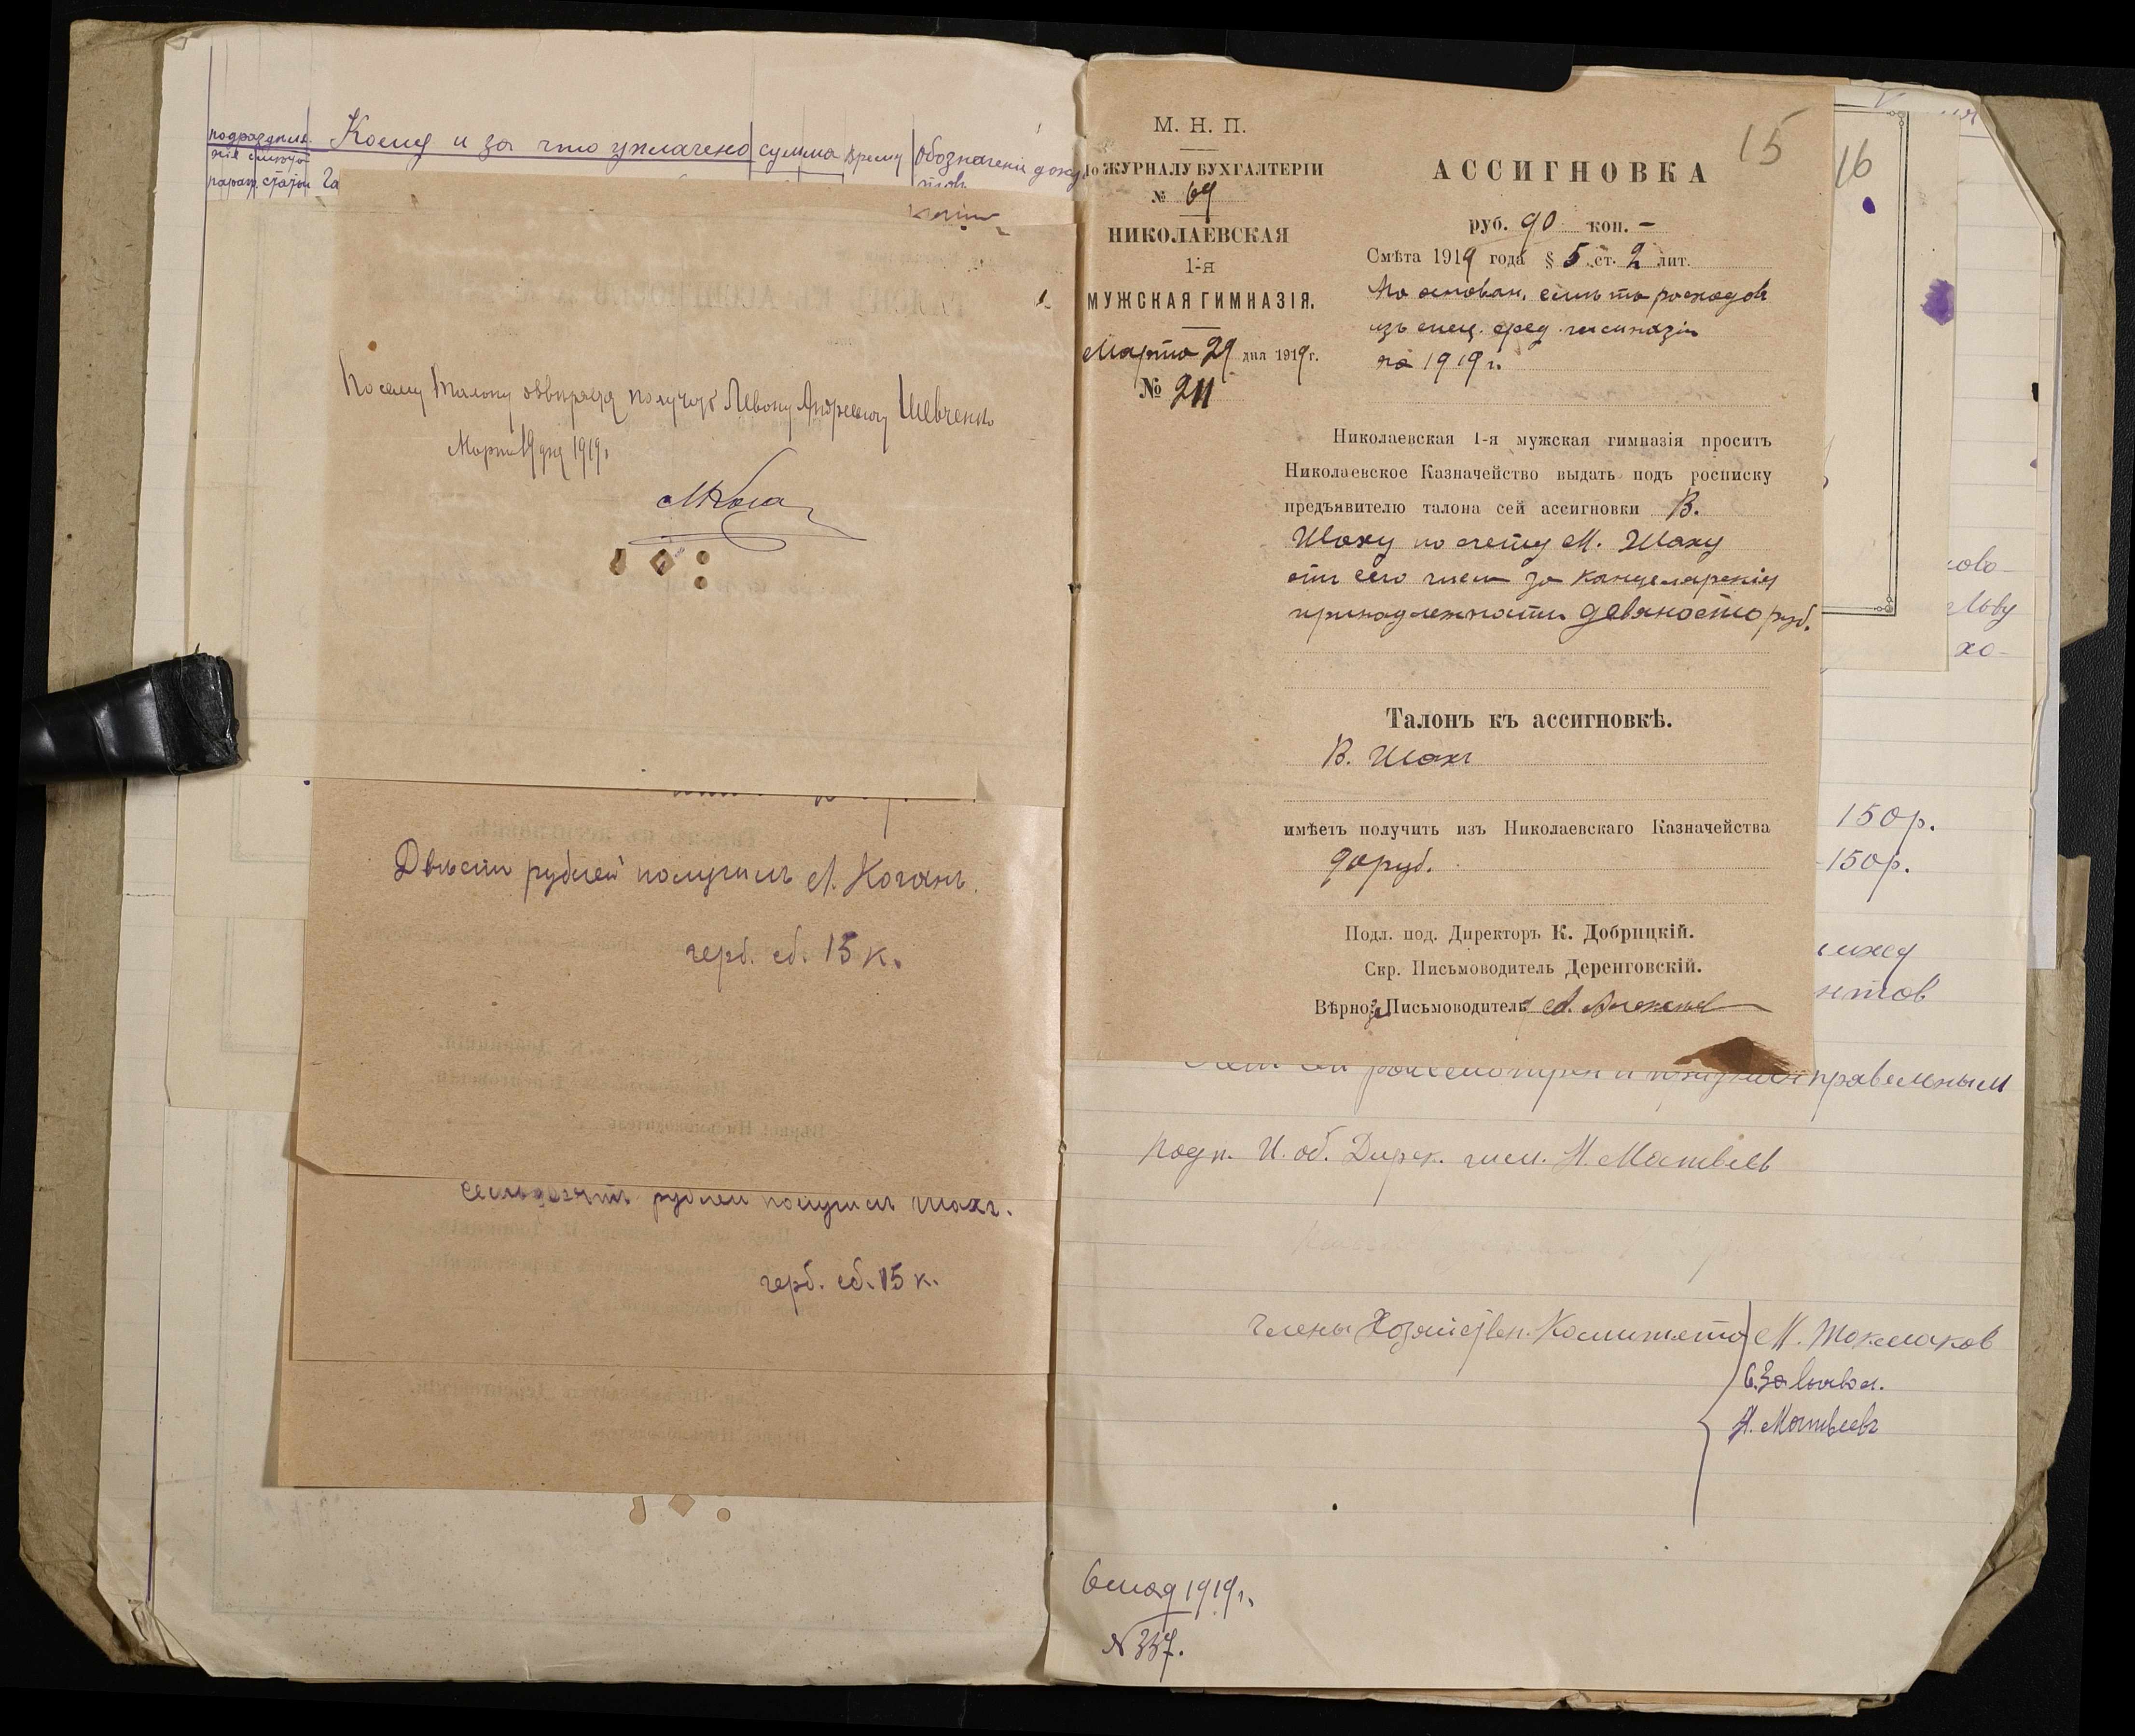 Кому и за что уплачено сумма Время Обозначенія доку
подраздѣле-
параг. статьи
По сему талону довѣряю получить Левону Андреевичу Шевченко
Марта 19 дня 1919.
Двѣсти рублей получилъ М. Коганъ.
герб. сб. 15 к.
семьдесятъ рублей получилъ Шахъ.
герб. сб. 15 к.
15
16
М. Н. П.
По ЖУРНАЛУ БУХГАЛТЕРІИ
№ 69
НИКОЛАЕВСКАЯ
1-я
МУЖСКАЯ ГИМНАЗІЯ.
Марта 29 дня 1919 г.
№ 211
АССИГНОВКА
руб. 90 коп. –
Смѣта 1919 года § 5 ст. 2 лит.
На основан. смѣты расходов
изъ спец. сред. гимназіи
на 1919 г.
Николаевская 1-я мужская гимназія проситъ
Николаевское Казначейство выдать подъ росписку
предъявителю талона сей ассигновки В.
Шаху по счету М. Шаху
отъ сего числа за канцелярскія
принадлежности девяносто руб.
Талонъ къ ассигновкѣ.
В. Шахъ
имѣетъ получить изъ Николаевскаго Казначейства
90 руб.
Подл. под. Директоръ К. Добрицкій.
Скр. Письмоводитель Деренговскій.
Вѣрно: за Письмоводителя
ова-
Льву
хо-
150р.
-150р.
нтов
правильным
подп. И. об. Дирек. гим. Н. Матвѣев
Члены Хозяйствен. Комитета М. Токмаков
Н. Матвѣевъ
6 мая 1919 г.
№ 357.